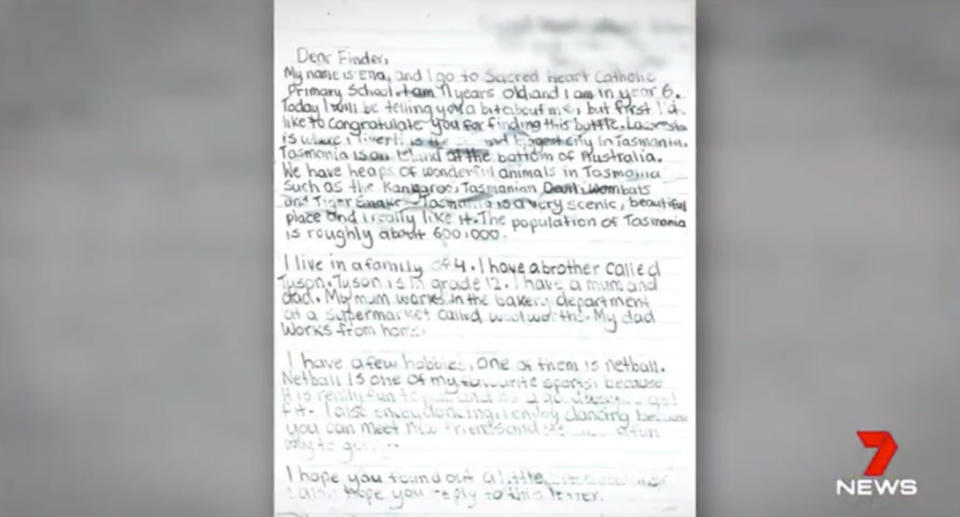 Dear Finder,
My name is Ella, and I go to Sacred Heart Catholic
Primary School. I am 11 years old and I am in year 6.
Today I will be telling you a bit about me, but first I'd
like to congratulate you for finding this bottle.
is where I live. It is the biggest city in Tasmania.
Tasmania is an island at the bottom of Australia.
We have heaps of wonderful animals in Tasmania
such as the Kangaroo, Tasmanian Devil, Wombats
and Tiger Snake. Tasmania is a very scenic, beautiful
place and I really like it. The population of Tasmania
is roughly about 600,000.
I live in a family of 4. I have a brother called
Tyson. Tyson is in grade 12. I have a mum and
dad. My mum works in the bakery department
at a supermarket called woolworths. My dad
works from home.
I have a few hobbies, one of them is netball.
Netball is one of my favourite sports, because
it is really fun to get
fit. I also enjoy dancing, I enjoy dancing because
you can meet new friends and a fun
way to
I hope you found out a little
I also hope you reply to this letter.
7
NEWS